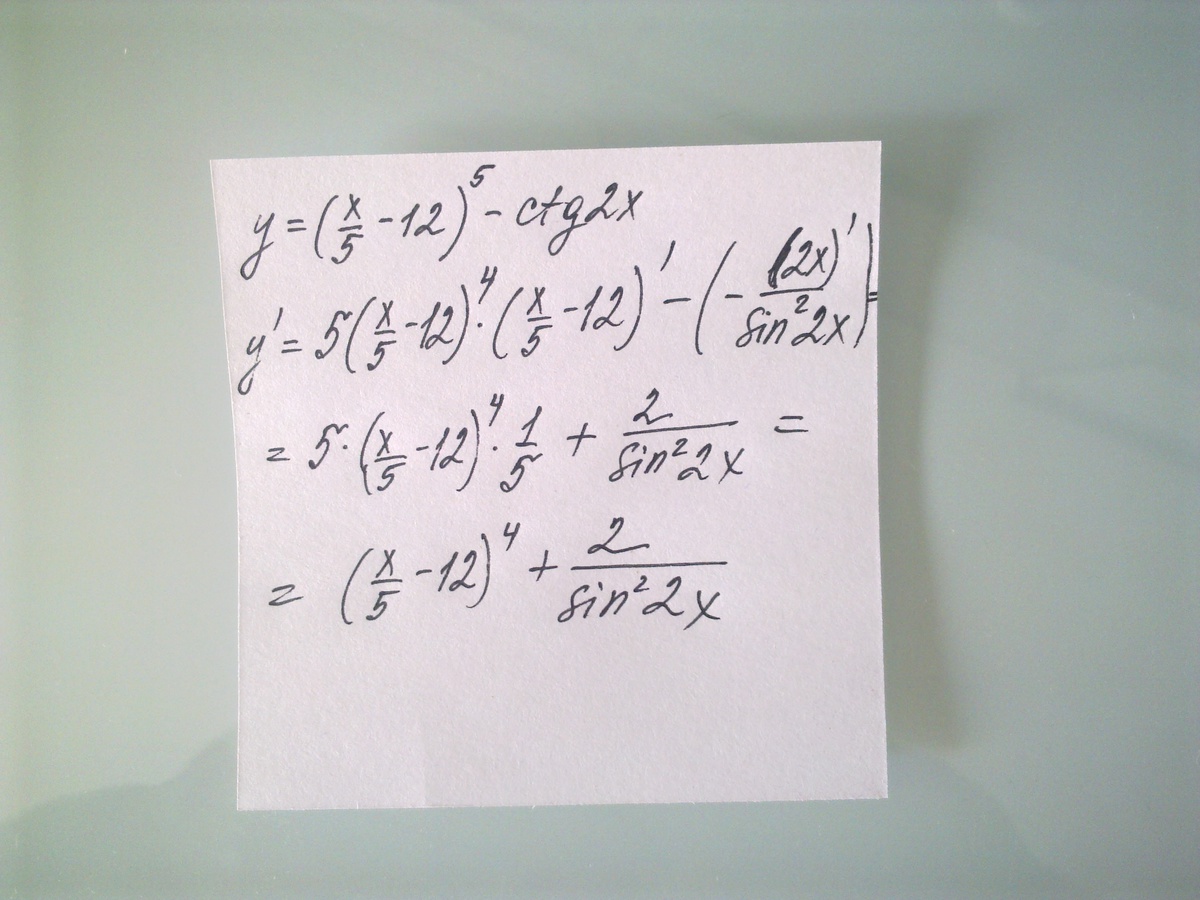 y = (x/5 - 12)^5 - ctg2x
y' = 5(x/5 - 12)^4 · (x/5 - 12)' - (- (2x)'/sin²2x) =
= 5 · (x/5 - 12)^4 · 1/5 + 2/sin²2x =
= (x/5 - 12)^4 + 2/sin²2x